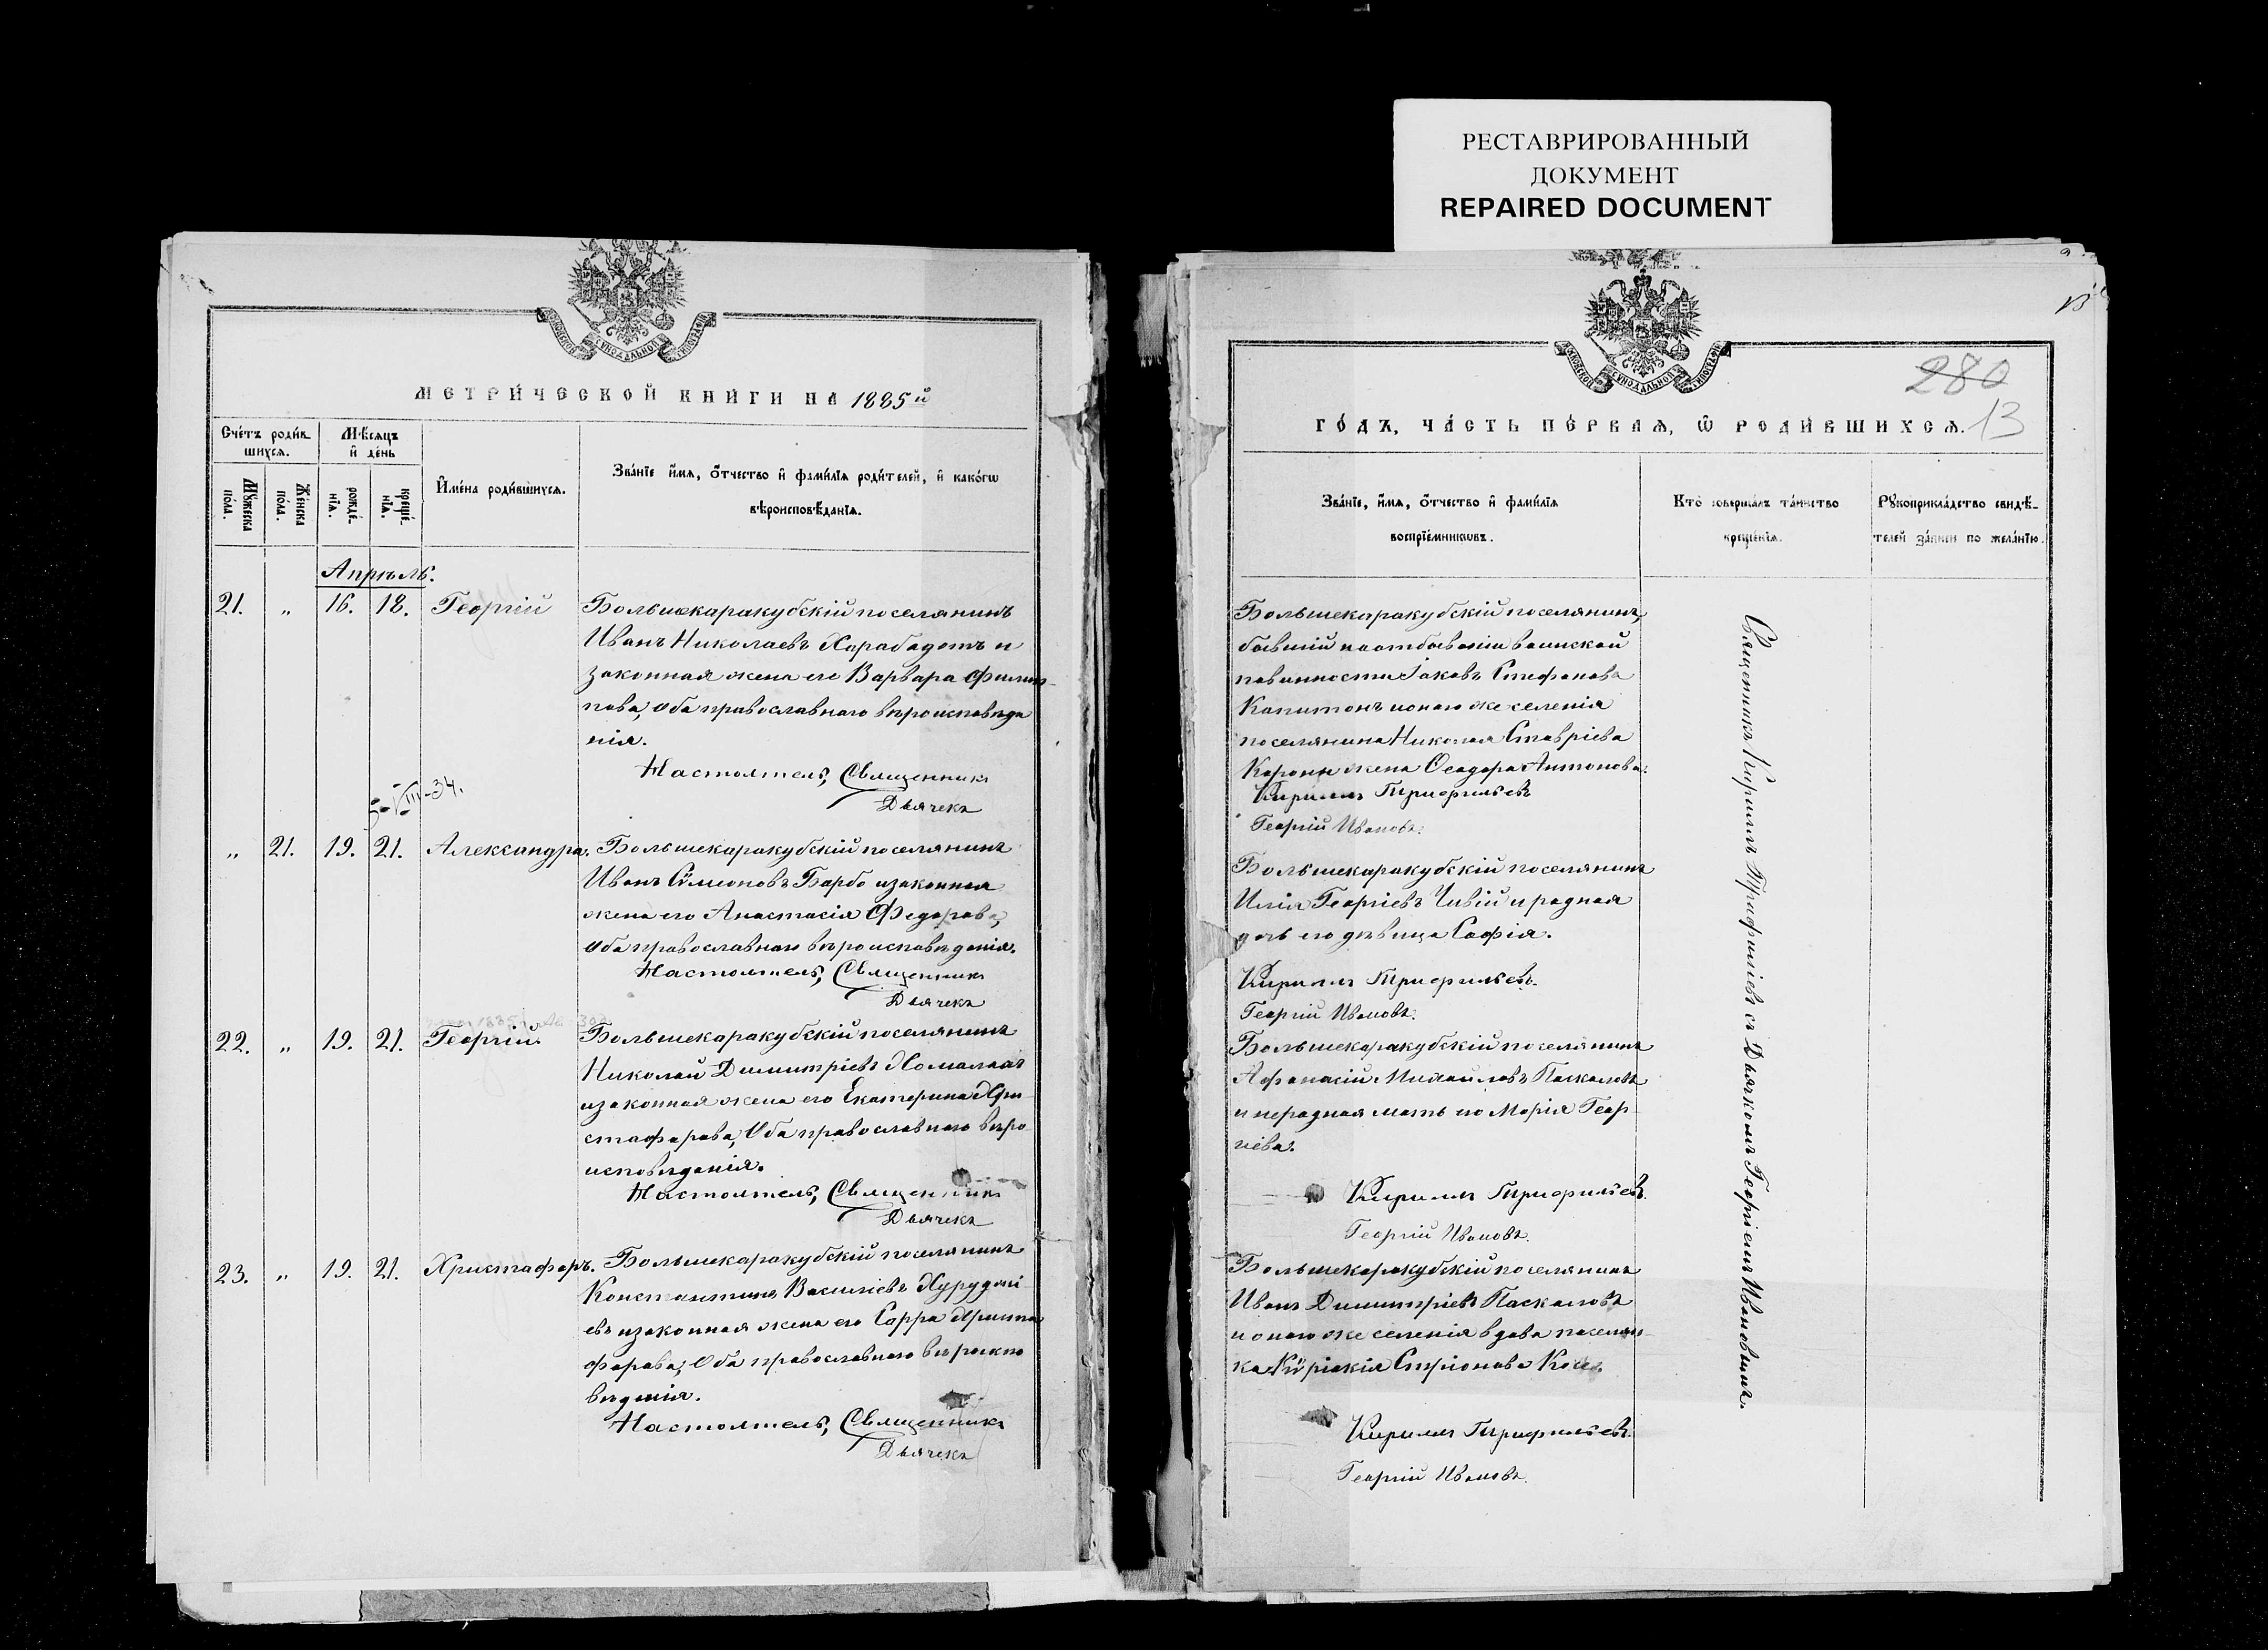 РЕСТАВРИРОВАННЫЙ
ДОКУМЕНТ
REPAIRED DOCUMENT
МЕТРИ́ЧЕСКОЙ КНИ́ГИ НА 1885й
Сче́тъ роди́в
шихся.
Мѣ́сяцъ
и҆ де́нь
Мꙋ́жеска
по́ла.
Же́нска
по́ла.
рожде́-
нїѧ.
креще́-
нїѧ.
И҆мена̀ роди́вшихсѧ.
Зва́нїе и҆́мѧ, ѻ҆́тчество и҆ фами́лїѧ роди́телей, и҆ како́гѡ
вѣроисповѣ́данїѧ.
Апрѣль.
21. „ 16. 18. Георгій
Большекаракубскій поселянинъ
Иванъ Николаевъ Харабадотъ и
законная жена его Варвара Филип-
пова, оба православнаго вѣроисповѣда
нія.
Настоятель, Священникъ
Дьячекъ
5-VIII-34.
„ 21. 19. 21. Александра.
Большекаракубскій поселянинъ
Иванъ Сѵмеоновъ Барбо и законная
жена его Анастасія Федорова,
оба православнаго вѣроисповѣданія.
Настоятель, Священникъ
Дьячекъ
22. „ 19. 21. Георгій.
Большекаракубскій поселянинъ
Николай Димитріевъ
и законная жена его Екатерина Хри-
стофорова, оба православнаго вѣро
исповѣданія.
Настоятель, Священникъ
Дьячекъ
23. „ 19. 21. Христафоръ.
Большекаракубскій поселянинъ
Константинъ Василіевъ Хуруджі
евъ и законная жена его Сарра Христо
форова, оба православнаго вѣроиспо
вѣданія.
Настоятель, Священникъ
Дьячекъ
13
280
13
ГО́ДЪ, ЧА́СТЬ ПЕ́РВАЯ, Ѡ҆ РОДИ́ВШИХСЯ.
Зва́нїе, и҆́мѧ, ѻ҆́тчество и҆ фами́лїѧ
воспрїе́мникѡвъ.
Кто̀ соверша́лъ та́инство
креще́нїѧ.
Рꙋкоприкла́дство свидѣ́-
телей за́писи по жела́нїю.
Большекаракубскій поселянинъ,
бывшій по отбыванію воинской
повинности Іаковъ Стефановъ
Капитонъ и онаго же селенія
поселянина Николая Ставріева
Корони жена Ѳеодора Антонова.
Кириллъ Трифильевъ
Георгій Ивановъ.
Большекаракубскій поселянинъ
Илія Георгіевъ Чивій и родная
дочь его дѣвица Софія.
Кириллъ Трифильевъ.
Георгій Ивановъ.
Большекаракубскій поселянинъ
Афанасій Михаиловъ Паскаловъ
и неродная мать его Марія Геор-
гіева.
Кириллъ Трифильевъ.
Георгій Ивановъ.
Большекаракубскій поселянинъ
Иванъ Димитріевъ Паскаловъ
и онаго же селенія вдова поселян-
ка Кѵріакія
Кириллъ Трифильевъ.
Георгій Ивановъ.
Священникъ Кириллъ Трифиліевъ съ Дьякомъ Георгіемъ Ивановымъ.